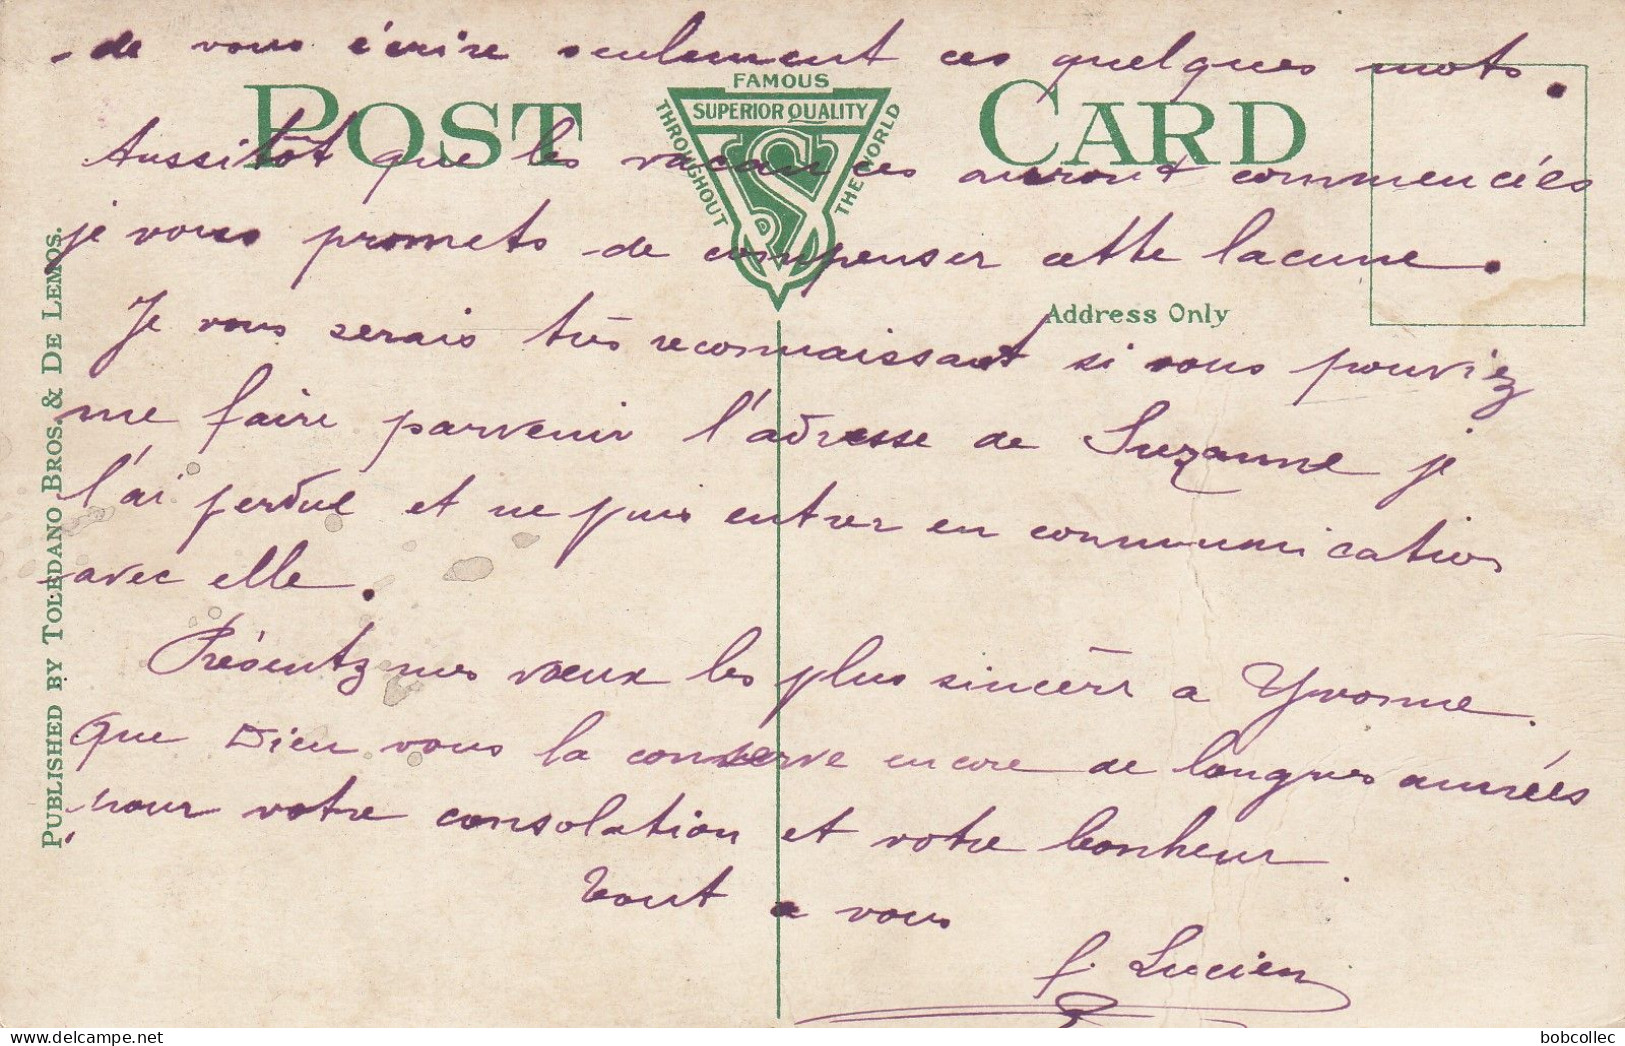 de vous écrire seulement ces quelques mots.
POST CARD
FAMOUS
SUPERIOR QUALITY
THROUGHOUT
THE WORLD
Aussitôt que les vacances auront commencées
je vous promets de compenser cette lacune.
Address Only
Je vous serais très reconnaissant si vous pouviez
me faire parvenir l'adresse de Suzanne je
l'ai perdue et ne puis entrer en communication
avec elle.
Présentez mes vœux les plus sincères a Yvonne.
Que Dieu vous la conserve encore de longues années
pour votre consolation et votre bonheur
Tout a vous
f. Lucien
PUBLISHED BY TOLEDANO BROS. & DE LEMOS.
bobcollec